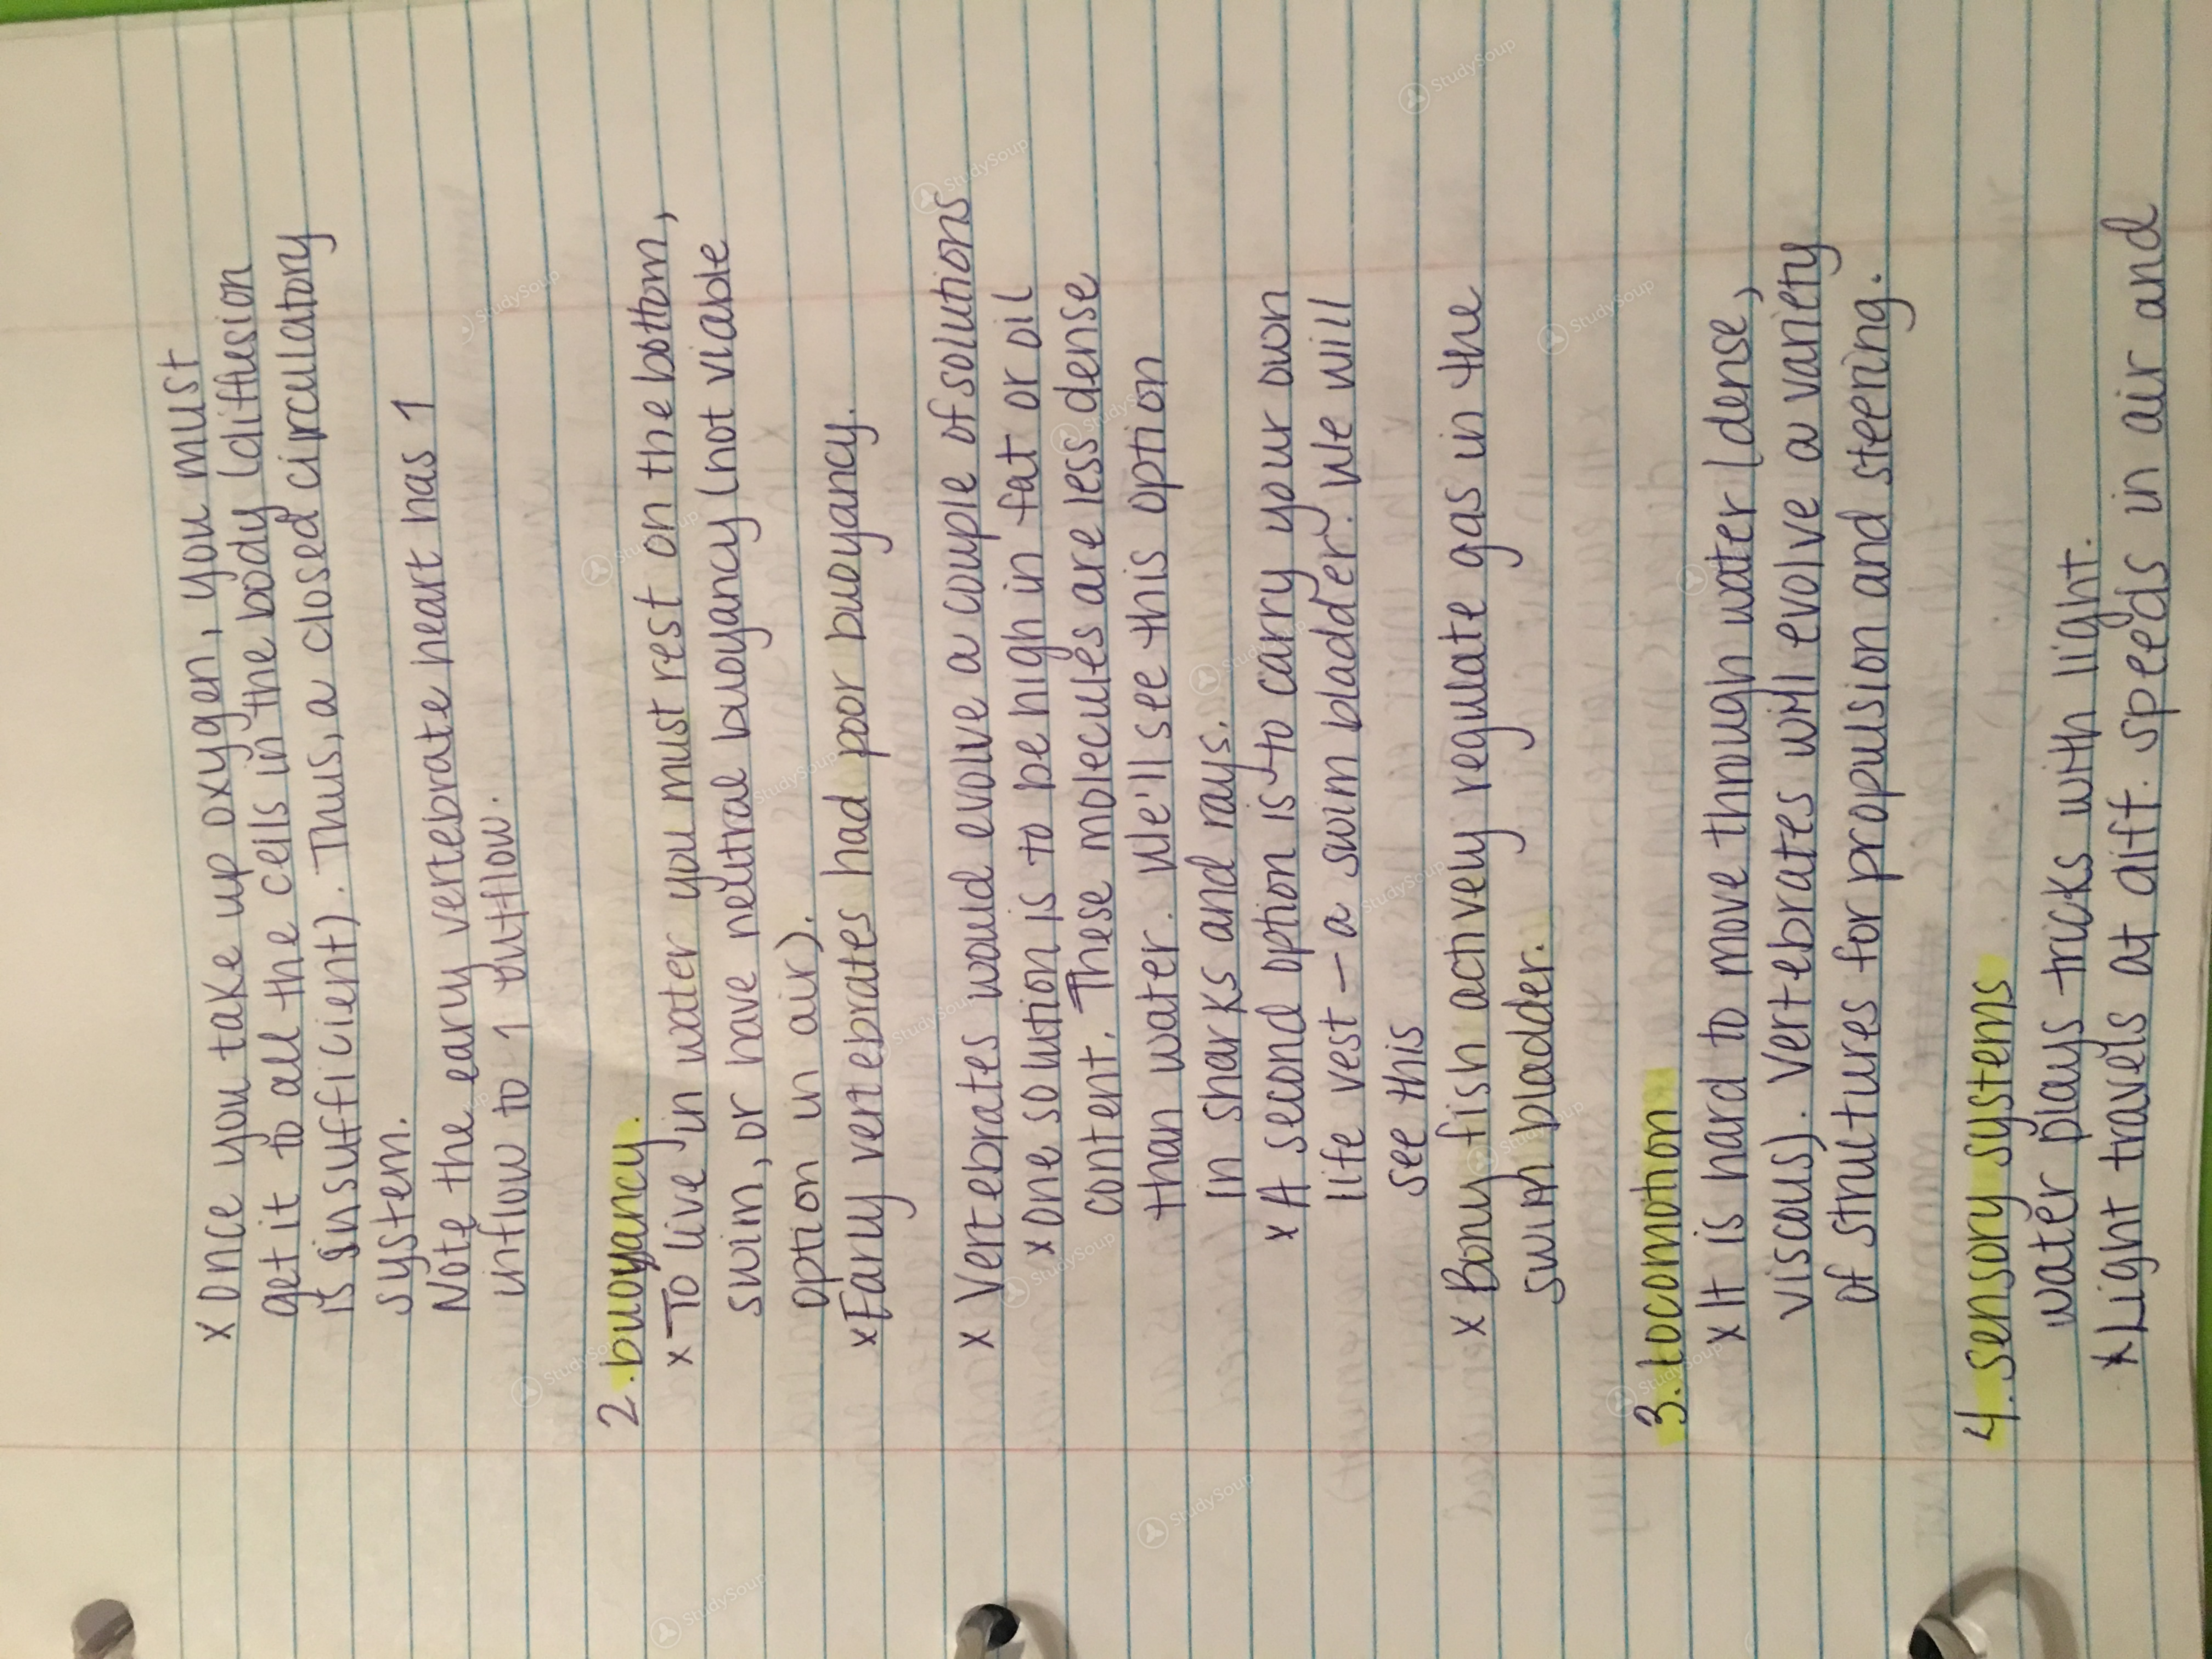 x Once you take up oxygen, you must
get it to all the cells in the body (diffusion
is insufficient). Thus, a closed circulatory
system.
Note the eary vertebrate heart has 1
inflow to 1 outflow.
2. buoyancy.
x To live in water you must rest on the bottom,
swim, or have neutral buoyancy (not viable
option in air).
x Early vertebrates had poor buoyancy.
x Vertebrates would evolve a couple of solutions
x One solution is to be high in fat or oil
content. These molecules are less dense
than water. We'll see this option
in sharks and rays.
x A second option is to carry your own
life vest – a swim bladder. We will
see this
x Bony fish actively regulate gas in the
swim bladder.
3. Locomotion
x It is hard to move through water (dense,
viscous). Vertebrates will evolve a variety
of structures for propulsion and steering.
4. sensory systems
water plays tricks with light.
x Light travels at diff. speeds in air and
StudySoup